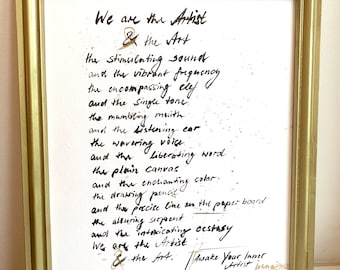 We are the Artist
& the Art
the stimulating sound
and the vibrant frequency
the encompassing clef
and the single tone
the mumbling mouth
and the listening ear
the wavering voice
and the liberating word
the plain canvas
and the enchanting color
the drawing pencil
and the precise line on the paper board
the alluring serpent
and the intoxicating ecstasy
We are the Artist
& the Art.
Awake Your Inner
Artist